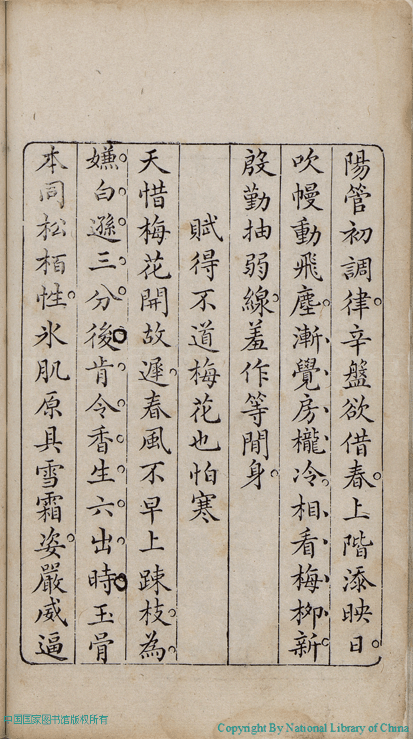 陽管初調律辛盤欲借春上階添映日
吹幔動飛塵漸覺房櫳冷相看梅柳新
殷勤抽弱線羞作等閒身
賦得不道梅花也怕寒
天惜梅花開故遲春風不早上踈枝為
嫌白遜三分後肯令香生六出時玉骨
本同松栢性氷肌原具雪霜姿嚴威逼
中国国家图书馆版权所有
Copyright By National Library of China